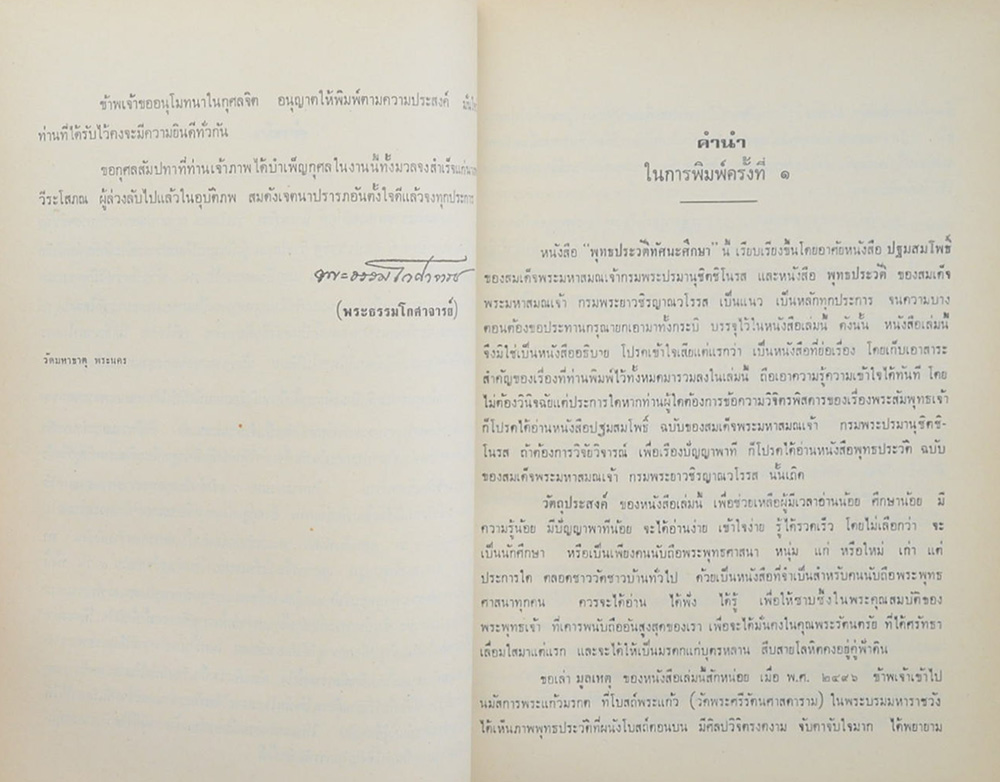 ข้าพเจ้าขออนุโมทนาในกุศลจิต อนุญาตให้พิมพ์ตามความประสงค์
ท่านที่ได้รับไว้คงจะมีความยินดีทั่วกัน
ขอกุศลสัมปทาที่ท่านเจ้าภาพได้บำเพ็ญกุศลในงานนี้ทั้งมวลจงสำเร็จแก่
วีระโสภณ ผู้ล่วงลับไปแล้วในอุบัติภพ สมดังเจตนาปรารภอันตั้งใจดีแล้วจงทุกประการ
พระธรรมโกศาจารย์
(พระธรรมโกศาจารย์)
วัดมหาธาตุ พระนคร
คำนำ
ในการพิมพ์ครั้งที่ ๑
หนังสือ "พุทธประวัติทัศนะศึกษา" นี้ เรียบเรียงขึ้นโดยอาศัยหนังสือ ปฐมสมโพธิ์
ของสมเด็จพระมหาสมณเจ้ากรมพระปรมานุชิตชิโนรส และหนังสือ พุทธประวัติ ของสมเด็จ
พระมหาสมณเจ้า กรมพระยาวชิรญาณวโรรส เป็นแนว เป็นหลักทุกประการ จนความบาง
ตอนต้องขอประทานกรุณายกเอามาทั้งกระบิ บรรจุไว้ในหนังสือเล่มนี้ ดังนั้น หนังสือเล่มนี้
จึงมิใช่เป็นหนังสืออธิบาย โปรดเข้าใจเสียแต่แรกว่า เป็นหนังสือที่ย่อเรื่อง โดยเก็บเอาสาระ
สำคัญของเรื่องที่ท่านพิมพ์ไว้ทั้งหมดมารวมลงในเล่มนี้ ถือเอาความรู้ความเข้าใจได้ทันที โดย
ไม่ต้องวินิจฉัยแต่ประการใดหากท่านผู้ใดต้องการข้อความวิจิตรพิสดารของเรื่องพระสัมพุทธเจ้า
ก็โปรดได้อ่านหนังสือปฐมสมโพธิ์ ฉบับของสมเด็จพระมหาสมณเจ้า กรมพระปรมานุชิตชิ-
โนรส ถ้าต้องการวิจัยวิจารณ์ เพื่อเรืองปัญญาพาที ก็โปรดได้อ่านหนังสือพุทธประวัติ ฉบับ
ของสมเด็จพระมหาสมณเจ้า กรมพระยาวชิรญาณวโรรส นั้นเถิด
วัตถุประสงค์ ของหนังสือเล่มนี้ เพื่อช่วยเหลือผู้มีเวลาอ่านน้อย ศึกษาน้อย มี
ความรู้น้อย มีปัญญาพาทีน้อย จะได้อ่านง่าย เข้าใจง่าย รู้ได้รวดเร็ว โดยไม่เลือกว่า จะ
เป็นนักศึกษา หรือเป็นเพียงคนนับถือพระพุทธศาสนา หนุ่ม แก่ หรือใหม่ เก่า แต่
ประการใด ตลอดชาววัดชาวบ้านทั่วไป ด้วยเป็นหนังสือที่จำเป็นสำหรับคนนับถือพระพุทธ
ศาสนาทุกคน ควรจะได้อ่าน ได้ฟัง ได้รู้ เพื่อให้ซาบซึ้งในพระคุณสมบัติของ
พระพุทธเจ้า ที่เคารพนับถืออันสูงสุดของเรา เพื่อจะได้มั่นคงในคุณพระรัตนตรัย ที่ได้ศรัทธา
เลื่อมใสมาแต่แรก และจะได้ให้เป็นมรดกแก่บุตรหลาน สืบสายโลหิตคงอยู่คู่ฟ้าดิน
ขอเล่า มูลเหตุ ของหนังสือเล่มนี้สักหน่อย เมื่อ พ.ศ. ๒๔๙๖ ข้าพเจ้าเข้าไป
นมัสการพระแก้วมรกต ที่โบสถ์พระแก้ว (วัดพระศรีรัตนศาสดาราม) ในพระบรมมหาราชวัง
ได้เห็นภาพพุทธประวัติที่ผนังโบสถ์ตอนบน มีศิลปวิจิตรงดงาม จับตาจับใจมาก ได้พยายาม